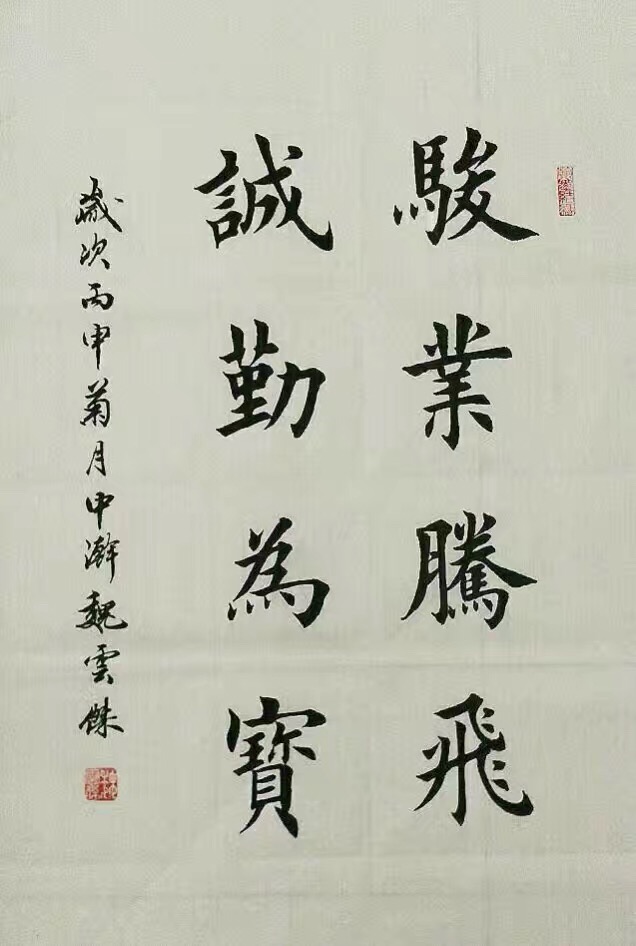 駿業騰飛
誠勤為寶
歲次丙申菊月中澣魏雲傑